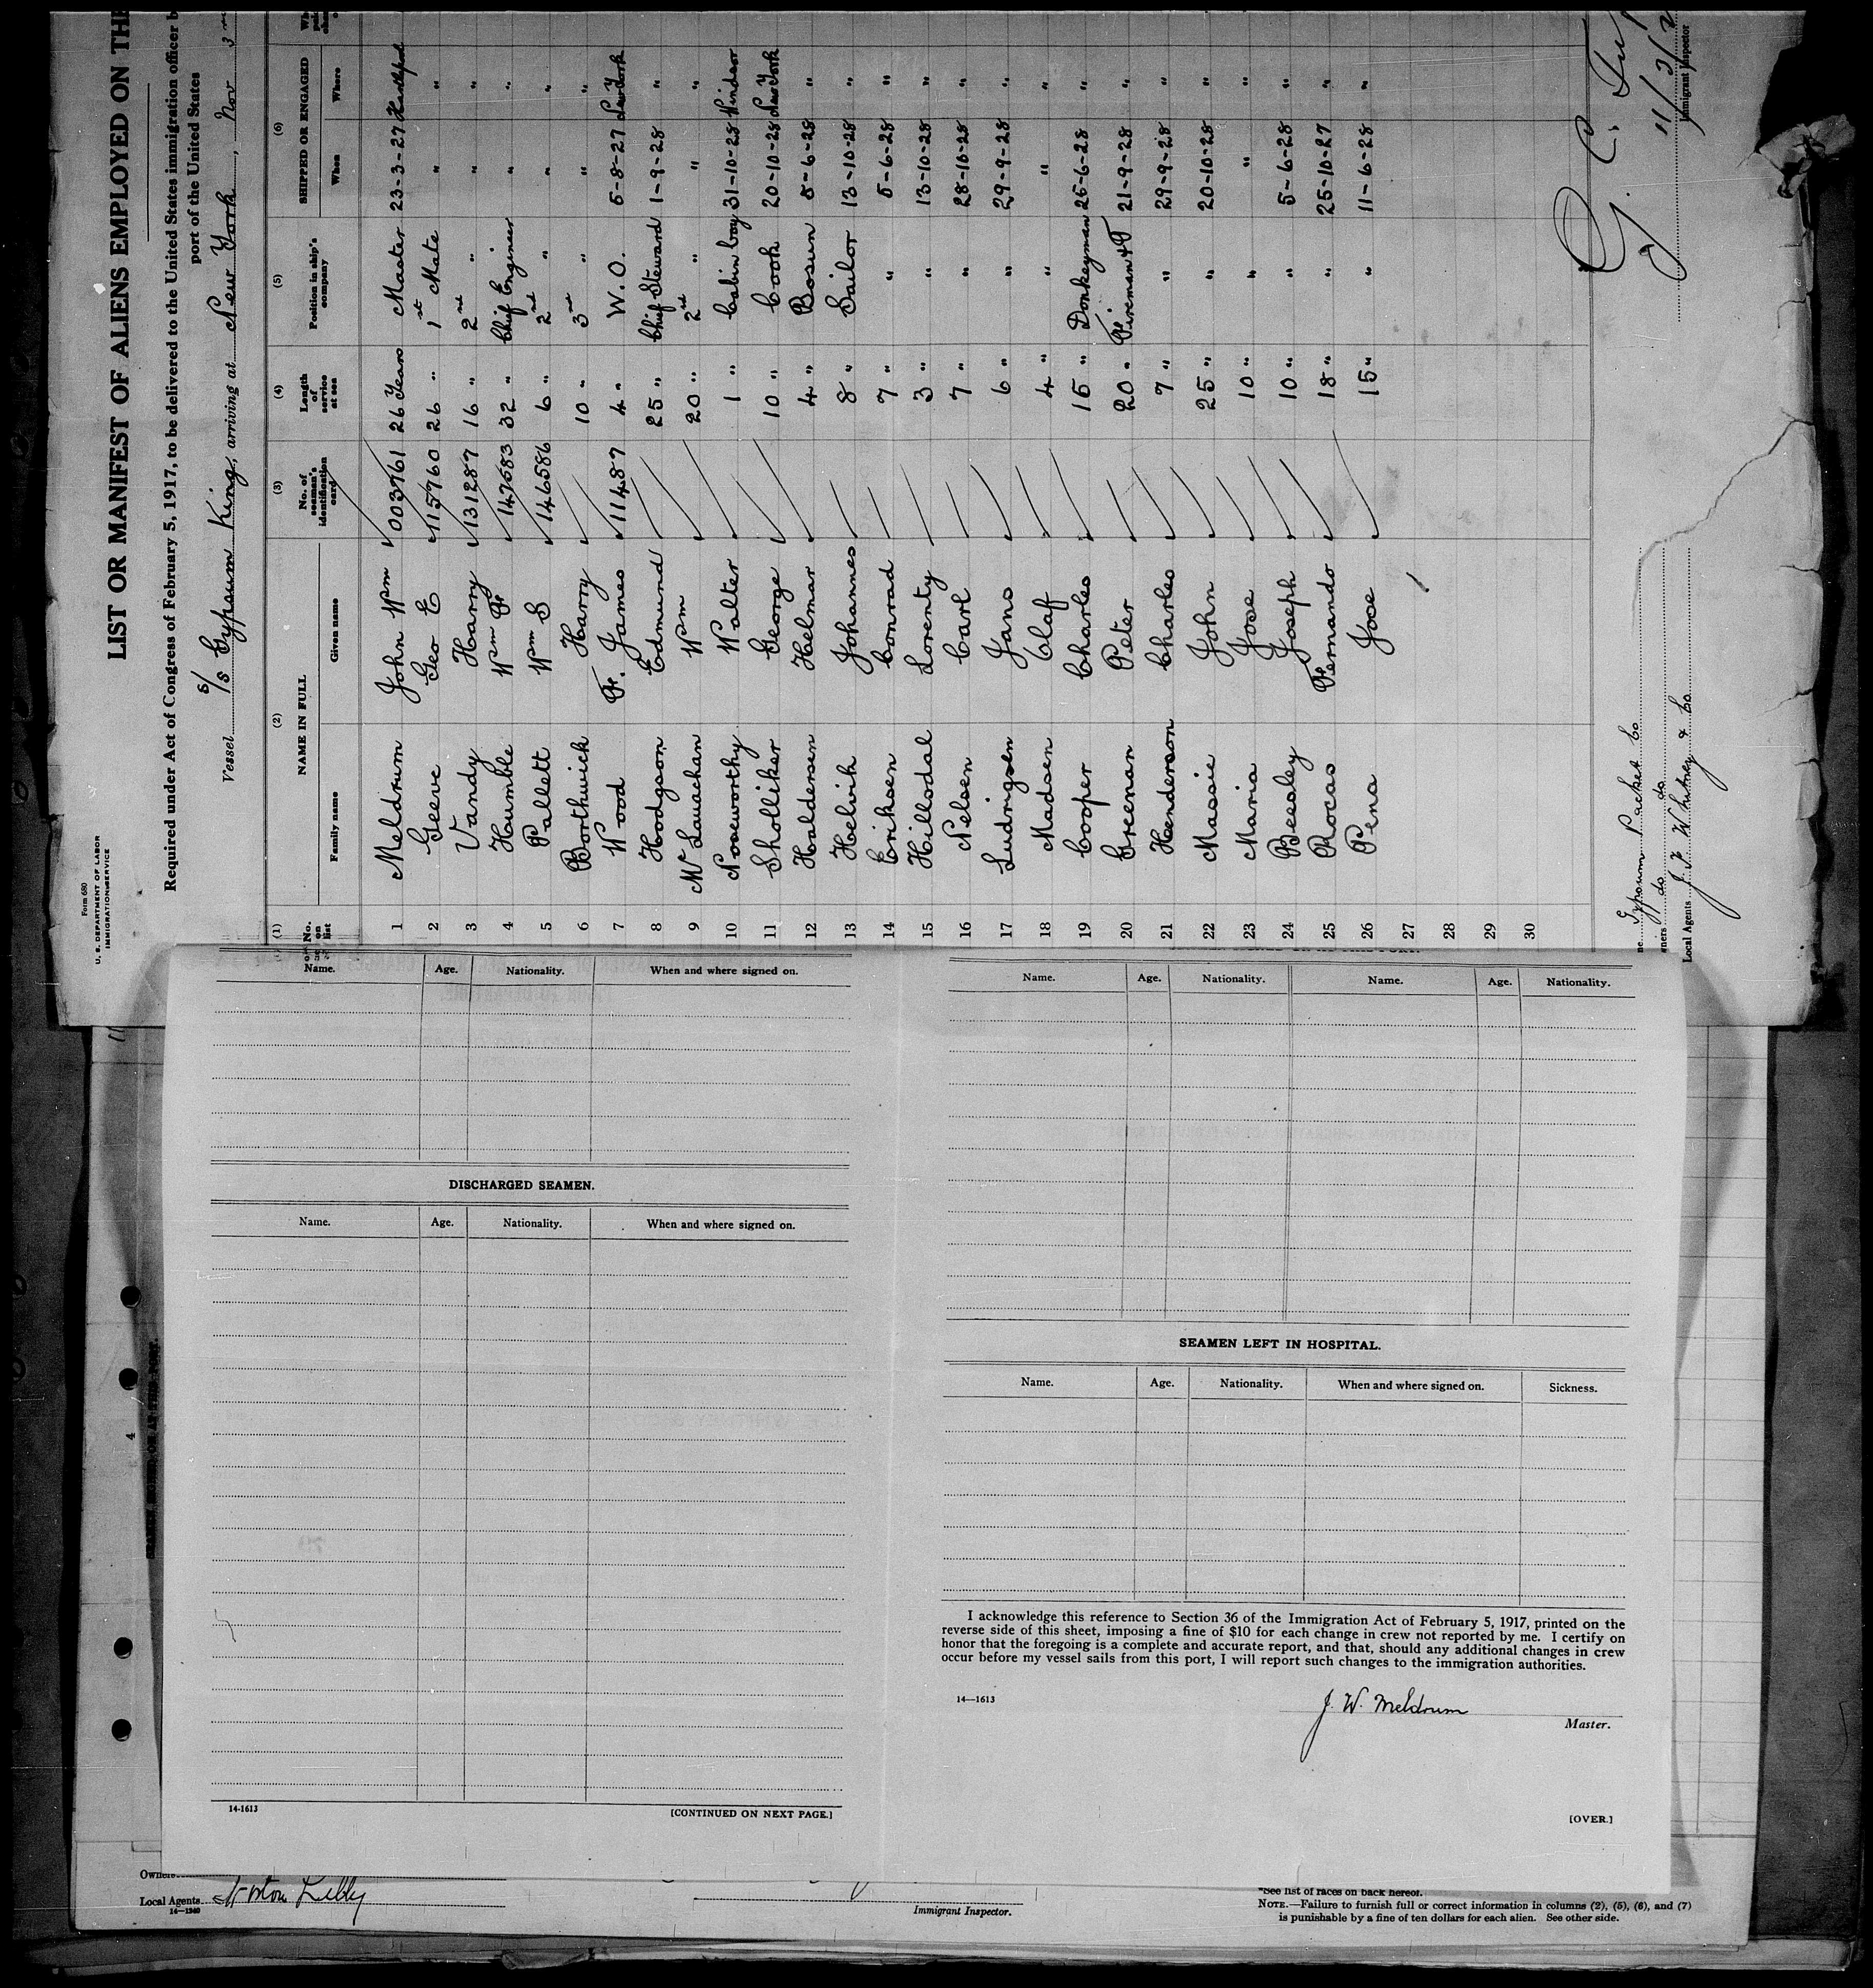 Form 680
U. S. DEPARTMENT OF LABOR
IMMIGRATION SERVICE
LIST OR MANIFEST OF ALIENS EMPLOYED ON THE
Required under Act of Congress of February 5, 1917, to be delivered to the United States immigration officer b
port of the United States
Vessel s/s Gypsum King, arriving at New York, Nov 3
(1) (2) (3) (4) (5) (6)
No. on list NAME IN FULL No. of seaman's identification card Length of service at sea Position in ship's company SHIPPED OR ENGAGED
Family name Given name When Where
1 Meldrum John Wm 003761 26 Years Master 23-3-27
2 Geeve Geo E 115760 26 " 1st Mate " "
3 Vandy Harry 131287 16 " 2nd " " "
4 Humble Wm Fr 147583 32 " Chief Engineer " "
5 Pallett Wm S 146586 6 " 2nd " " "
6 Borthwick Harry 10 " 3rd " " "
7 Wood Fr. James 11487 4 " W. O. 5-8-27 New York
8 Hodgson Edmund 25 " Chief Steward 1-9-28 "
9 Wm 20 " 2nd " " "
10 Noseworthy Walter 1 " Cabin boy 31-10-28 Windsor
11 Sholliker George 10 " Cook 20-10-28 New York
12 Haldersen Helmar 4 " Bosun 5-6-28 "
13 Helvik Johannes 8 " Sailor 13-10-28 "
14 Eriksen Conrad 7 " " 5-6-28 "
15 Hillodal Lorenty 3 " " 13-10-28 "
16 Nelsen Carl 7 " " 28-10-28 "
17 Ludrigsen Jans 6 " " 29-9-28 "
18 Madsen Olaf 4 " " " "
19 Cooper Charles 15 " Donkeyman 25-6-28 "
20 Greenan Peter 20 " Fireman & T 21-9-28 "
21 Henderson Charles 7 " " 29-9-28 "
22 Massie John 25 " " 20-10-28 "
23 Maria Jose 10 " " " "
24 Beesley Joseph 10 " " 5-6-28 "
25 Rocas Fernando 18 " " 25-10-27 "
26 Pena Jose 15 " " 11-6-28 "
27
28
29
30
Gypsum Packet Co
do do
Local Agents J. F. Whitney & Co
11/3/2
Immigrant Inspector
Name. Age. Nationality. When and where signed on.
DISCHARGED SEAMEN.
Name. Age. Nationality. When and where signed on.
14-1613
[CONTINUED ON NEXT PAGE.]
Name. Age. Nationality. Name. Age. Nationality.
SEAMEN LEFT IN HOSPITAL.
Name. Age. Nationality. When and where signed on. Sickness.
I acknowledge this reference to Section 36 of the Immigration Act of February 5, 1917, printed on the
reverse side of this sheet, imposing a fine of $10 for each change in crew not reported by me. I certify on
honor that the foregoing is a complete and accurate report, and that, should any additional changes in crew
occur before my vessel sails from this port, I will report such changes to the immigration authorities.
14—1613
J. W. Meldrum
Master.
[OVER.]
4
Owners
Local Agents Norton Lilly
14—1240
Immigrant Inspector.
*See list of races on back hereof.
NOTE.—Failure to furnish full or correct information in columns (2), (5), (6), and (7)
is punishable by a fine of ten dollars for each alien. See other side.